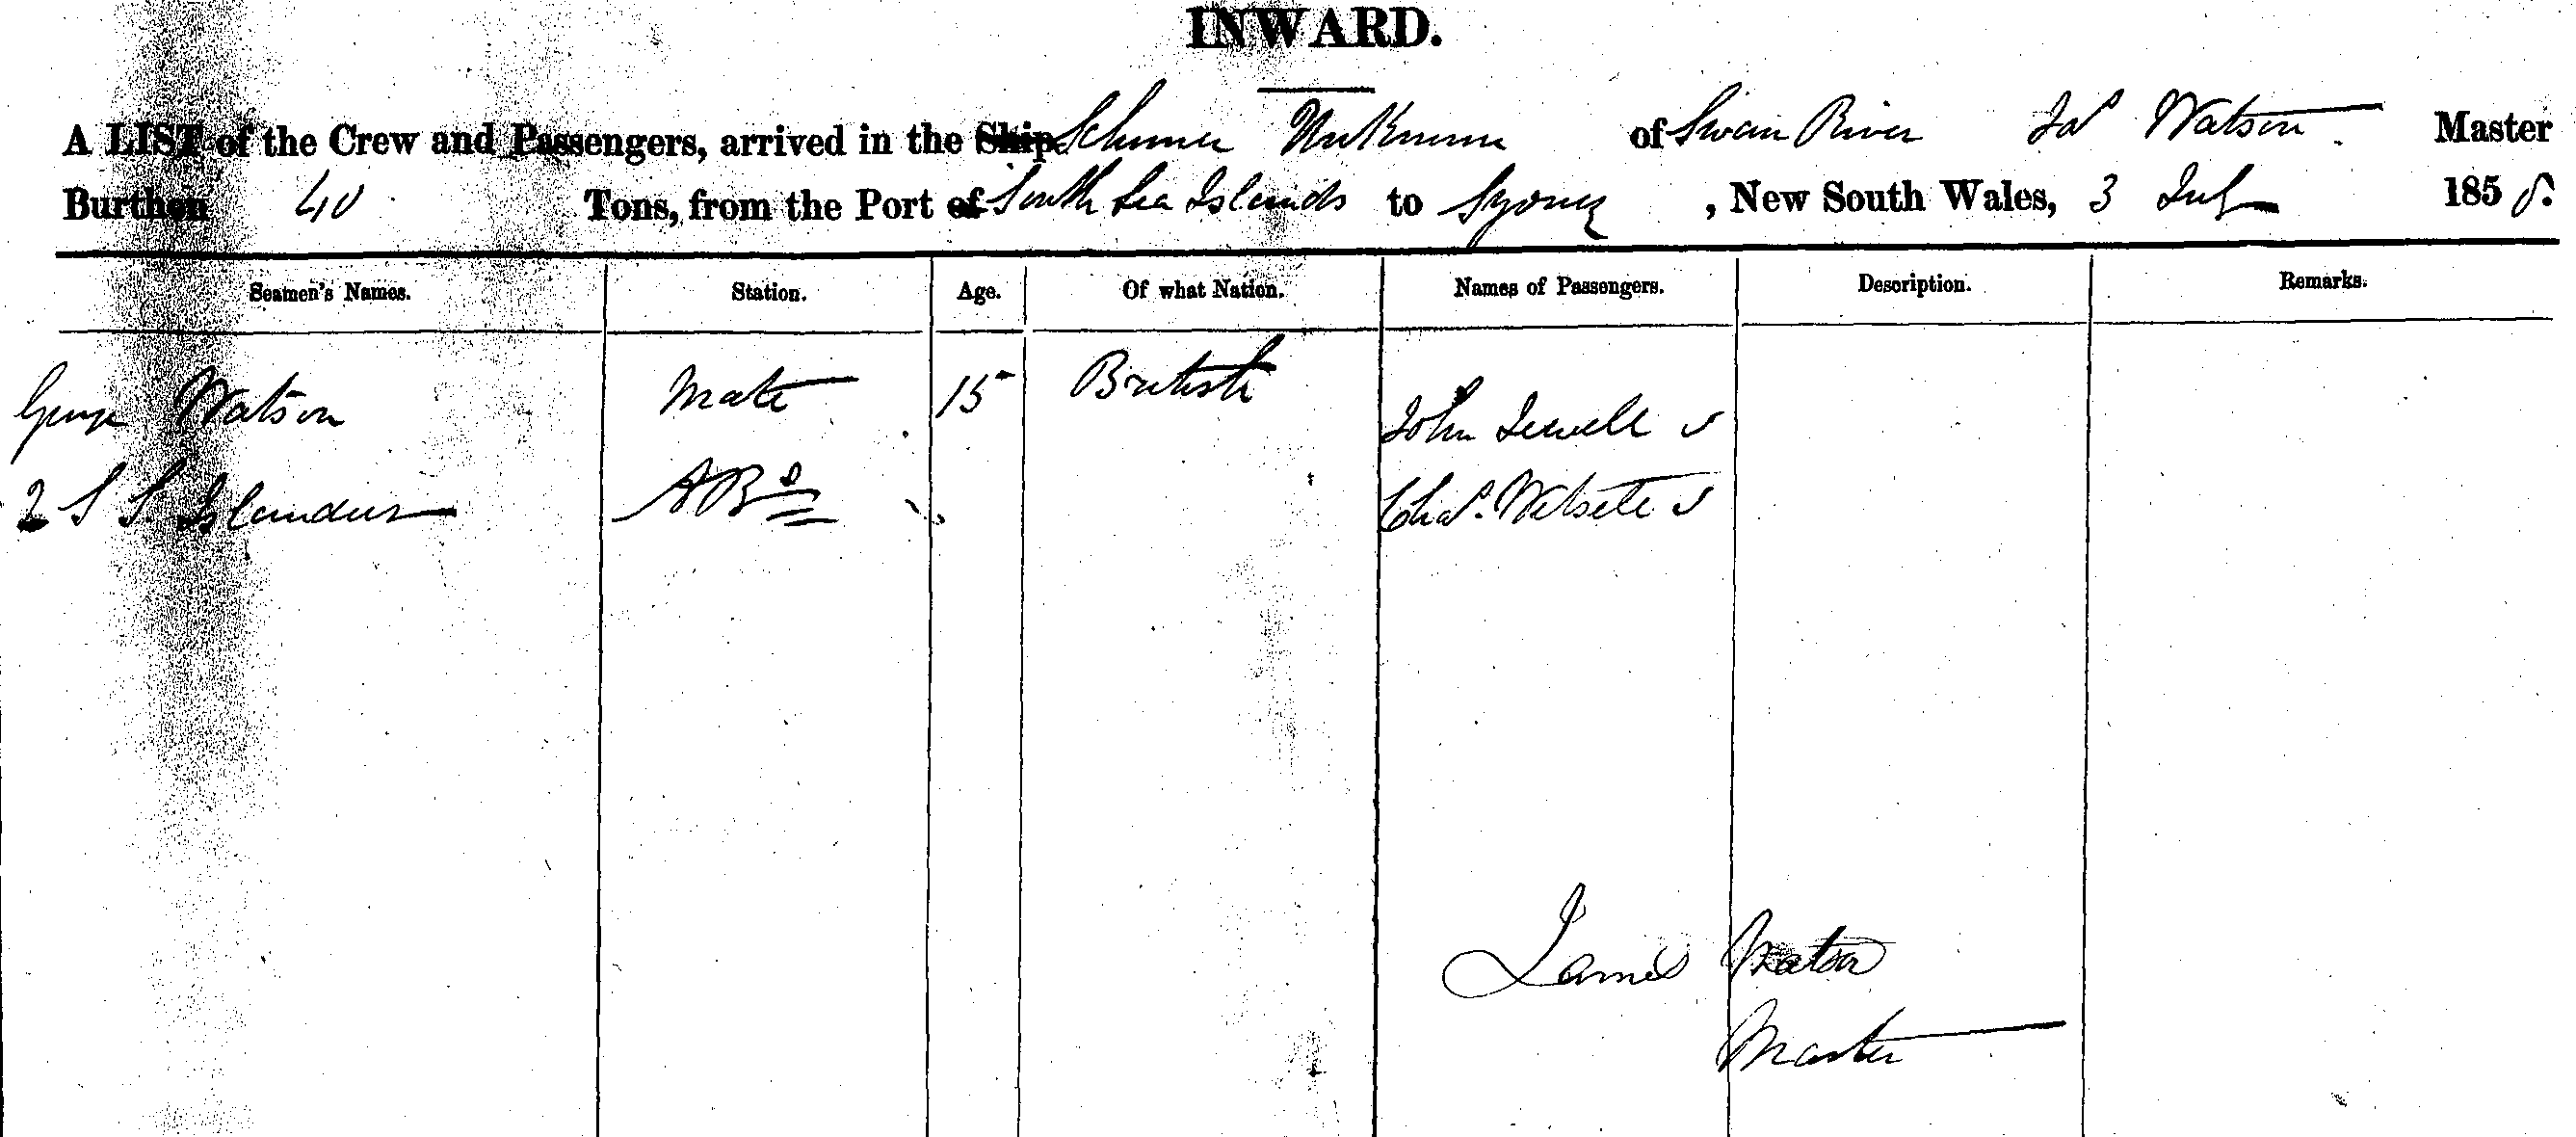 INWARD.
A LIST of the Crew and Passengers, arrived in the Ship Schooner of Swan River Jas Watson Master
Burthen 40 Tons, from the Port of South Sea Islands to Sydney, New South Wales, 3 July 1858.
Seamen's Names. Station. Age. Of what Nation. Names of Passengers. Description. Remarks.
George Watson Mate 15 British John Jewell
2 S S. Islanders ABs Chas.
James Watson
Master